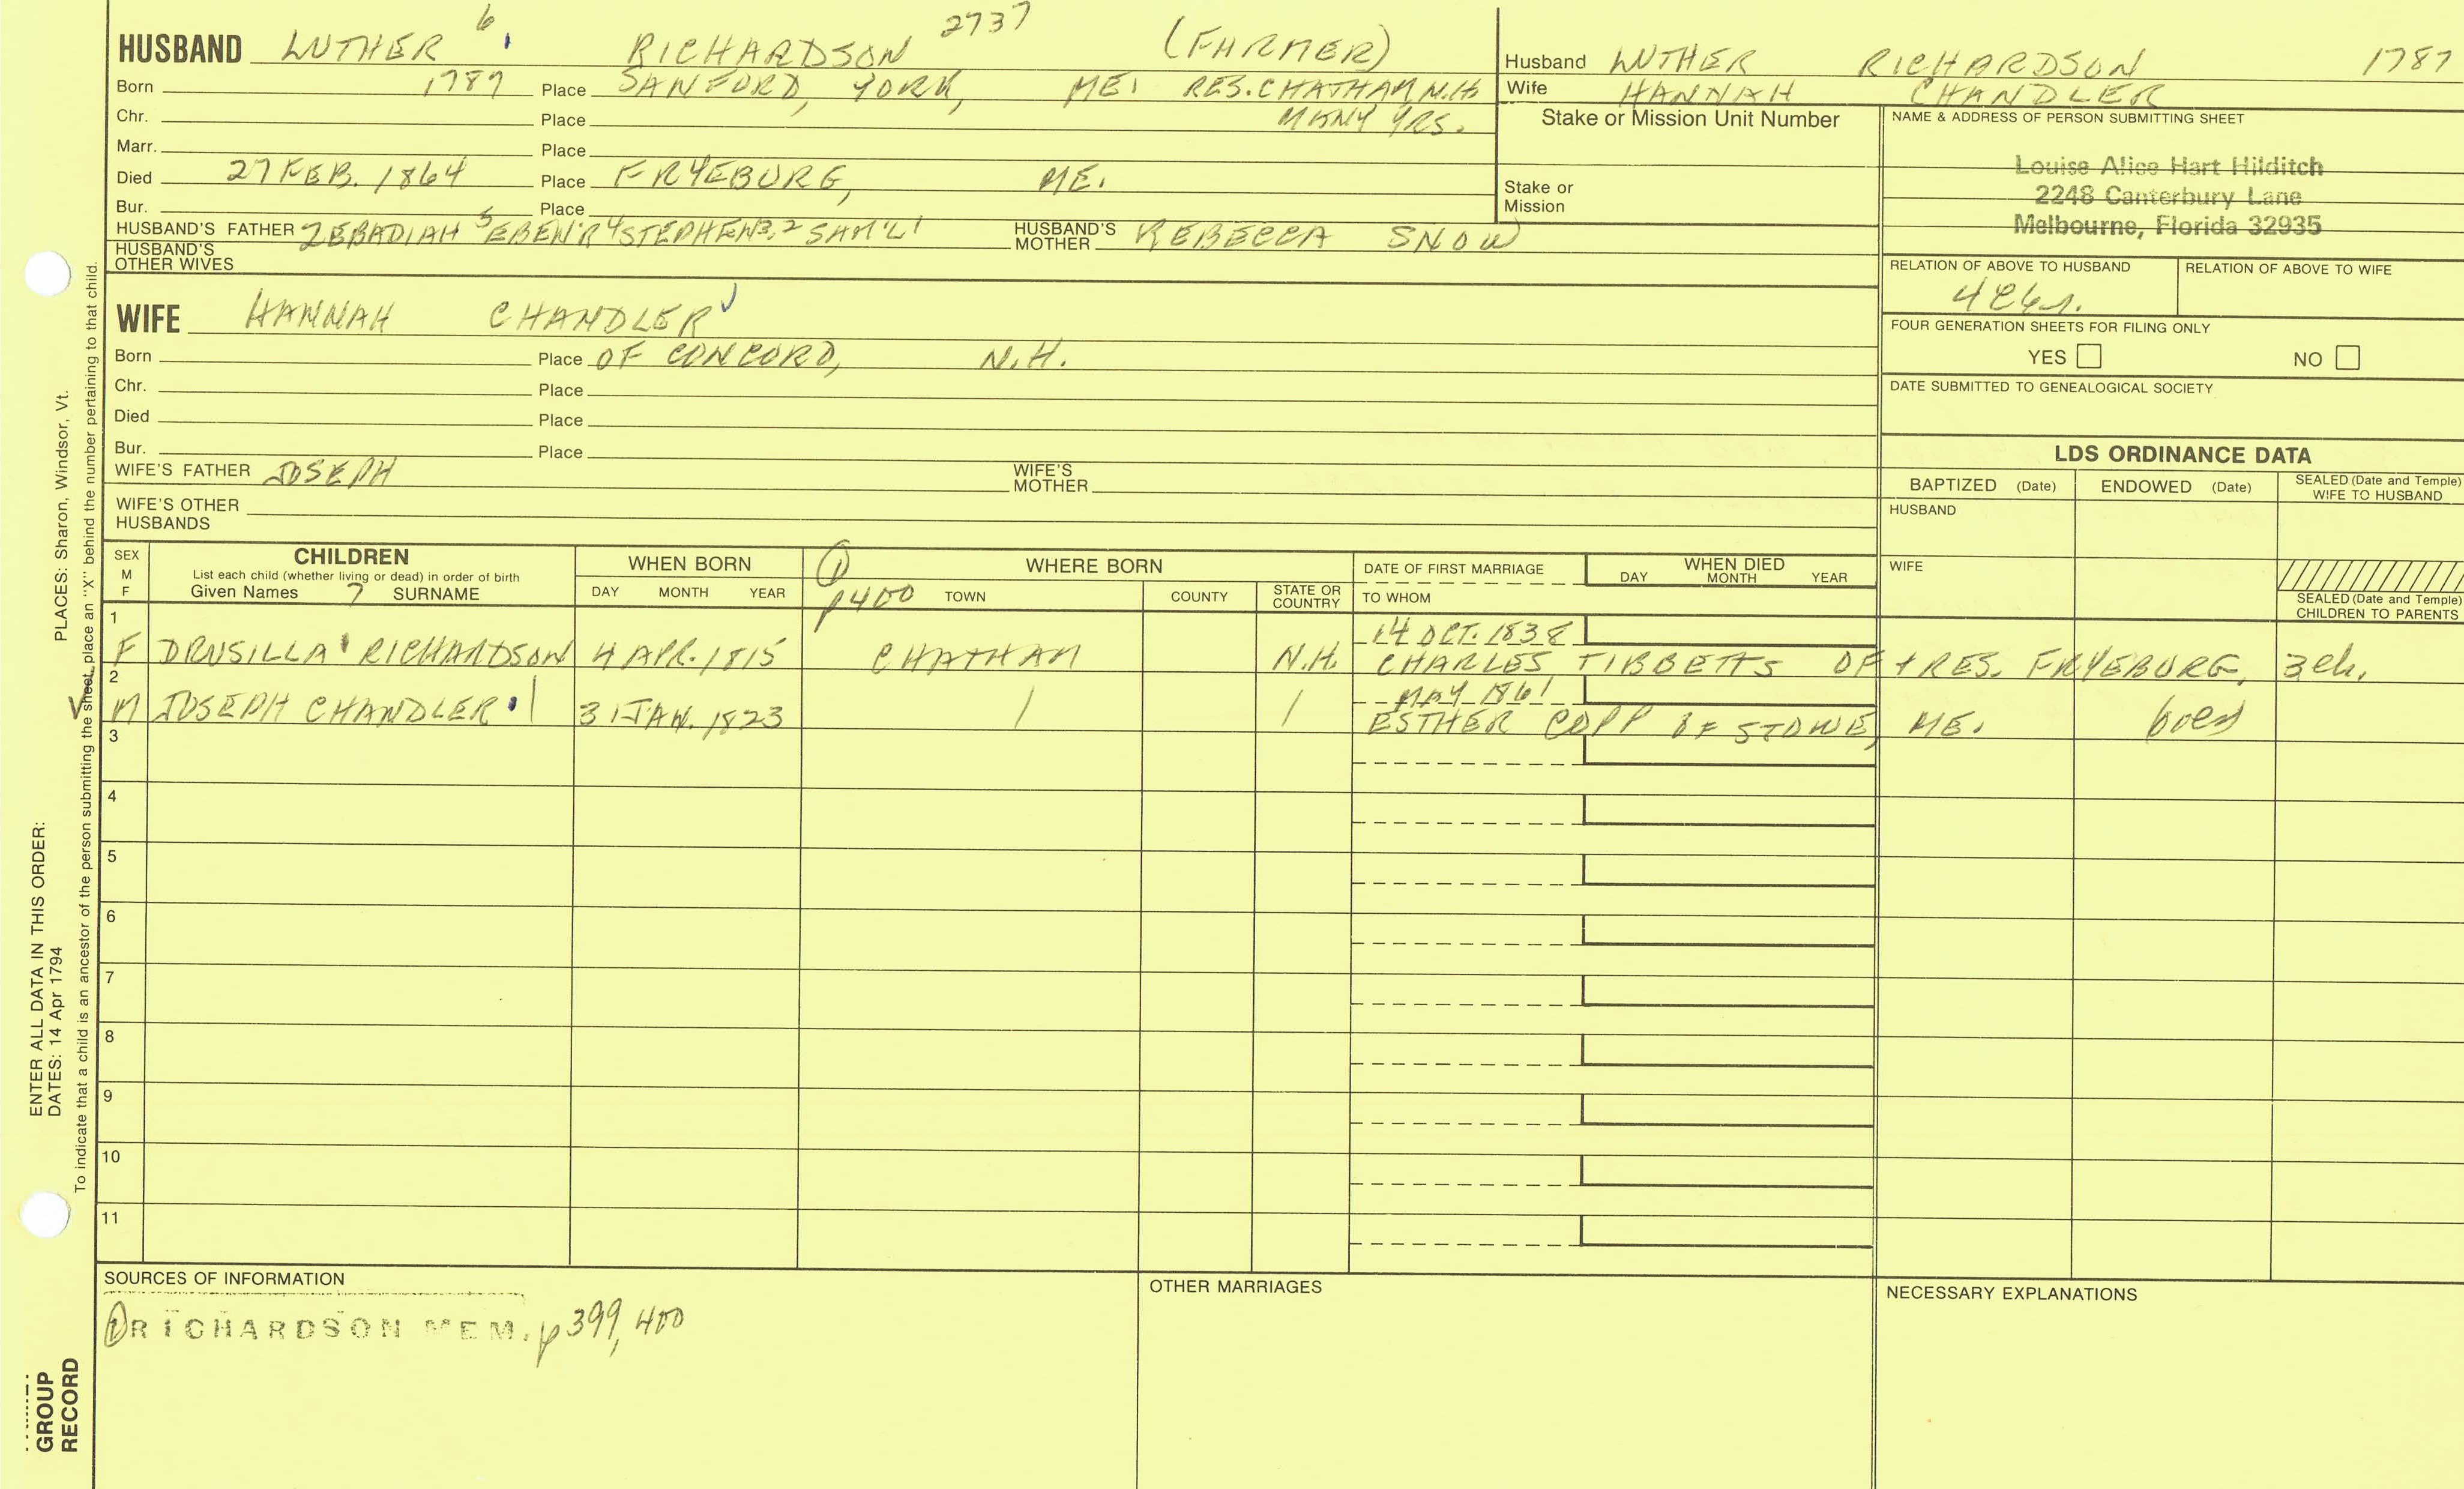 HUSBAND LUTHER 6 RICHARDSON 2737 (FARMER)
Born 1787 Place SANFORD, YORK, ME. RES. CHATHAM N.H.
Chr. Place MANY YRS.
Marr. Place
Died 27 FEB. 1864 Place FRYEBURG, ME.
Bur. Place
HUSBAND'S FATHER ZEBADIAH 5 EBEN'R 4 STEPHEN 3, 2 SAM'L 1 HUSBAND'S MOTHER REBECCA SNOW
HUSBAND'S OTHER WIVES
Husband LUTHER RICHARDSON 1787
Wife HANNAH CHANDLER
Stake or Mission Unit Number
Stake or Mission
NAME & ADDRESS OF PERSON SUBMITTING SHEET
Louise Alice Hart Hilditch
2248 Canterbury Lane
Melbourne, Florida 32935
RELATION OF ABOVE TO HUSBAND RELATION OF ABOVE TO WIFE
FOUR GENERATION SHEETS FOR FILING ONLY
YES NO
DATE SUBMITTED TO GENEALOGICAL SOCIETY
WIFE HANNAH CHANDLER
Born Place OF CONCORD, N.H.
Chr. Place
Died Place
Bur. Place
WIFE'S FATHER JOSEPH WIFE'S MOTHER
WIFE'S OTHER HUSBANDS
LDS ORDINANCE DATA
BAPTIZED (Date) ENDOWED (Date) SEALED (Date and Temple) WIFE TO HUSBAND
HUSBAND
WIFE
SEALED (Date and Temple) CHILDREN TO PARENTS
SEX M F
CHILDREN
List each child (whether living or dead) in order of birth
Given Names 7 SURNAME
WHEN BORN
DAY MONTH YEAR
① p400
WHERE BORN
TOWN COUNTY STATE OR COUNTRY
DATE OF FIRST MARRIAGE
TO WHOM
WHEN DIED
DAY MONTH YEAR
1
14 OCT. 1838
F DRUSILLA RICHARDSON 4 APR. 1815 CHATHAM N.H. CHARLES TIBBETTS OF + RES. FRYEBURG, 3ch.
2
MAY 1861
M JOSEPH CHANDLER 31 JAN. 1823 ESTHER COPP OF STOWE, ME.
3
4
5
6
7
8
9
10
11
SOURCES OF INFORMATION
① RICHARDSON MEM. p399, 400
OTHER MARRIAGES
NECESSARY EXPLANATIONS
PLACES: Sharon, Windsor, Vt.
ENTER ALL DATA IN THIS ORDER:
DATES: 14 Apr 1794
To indicate that a child is an ancestor of the person submitting the sheet, place an "X" behind the number pertaining to that child.
GROUP
RECORD